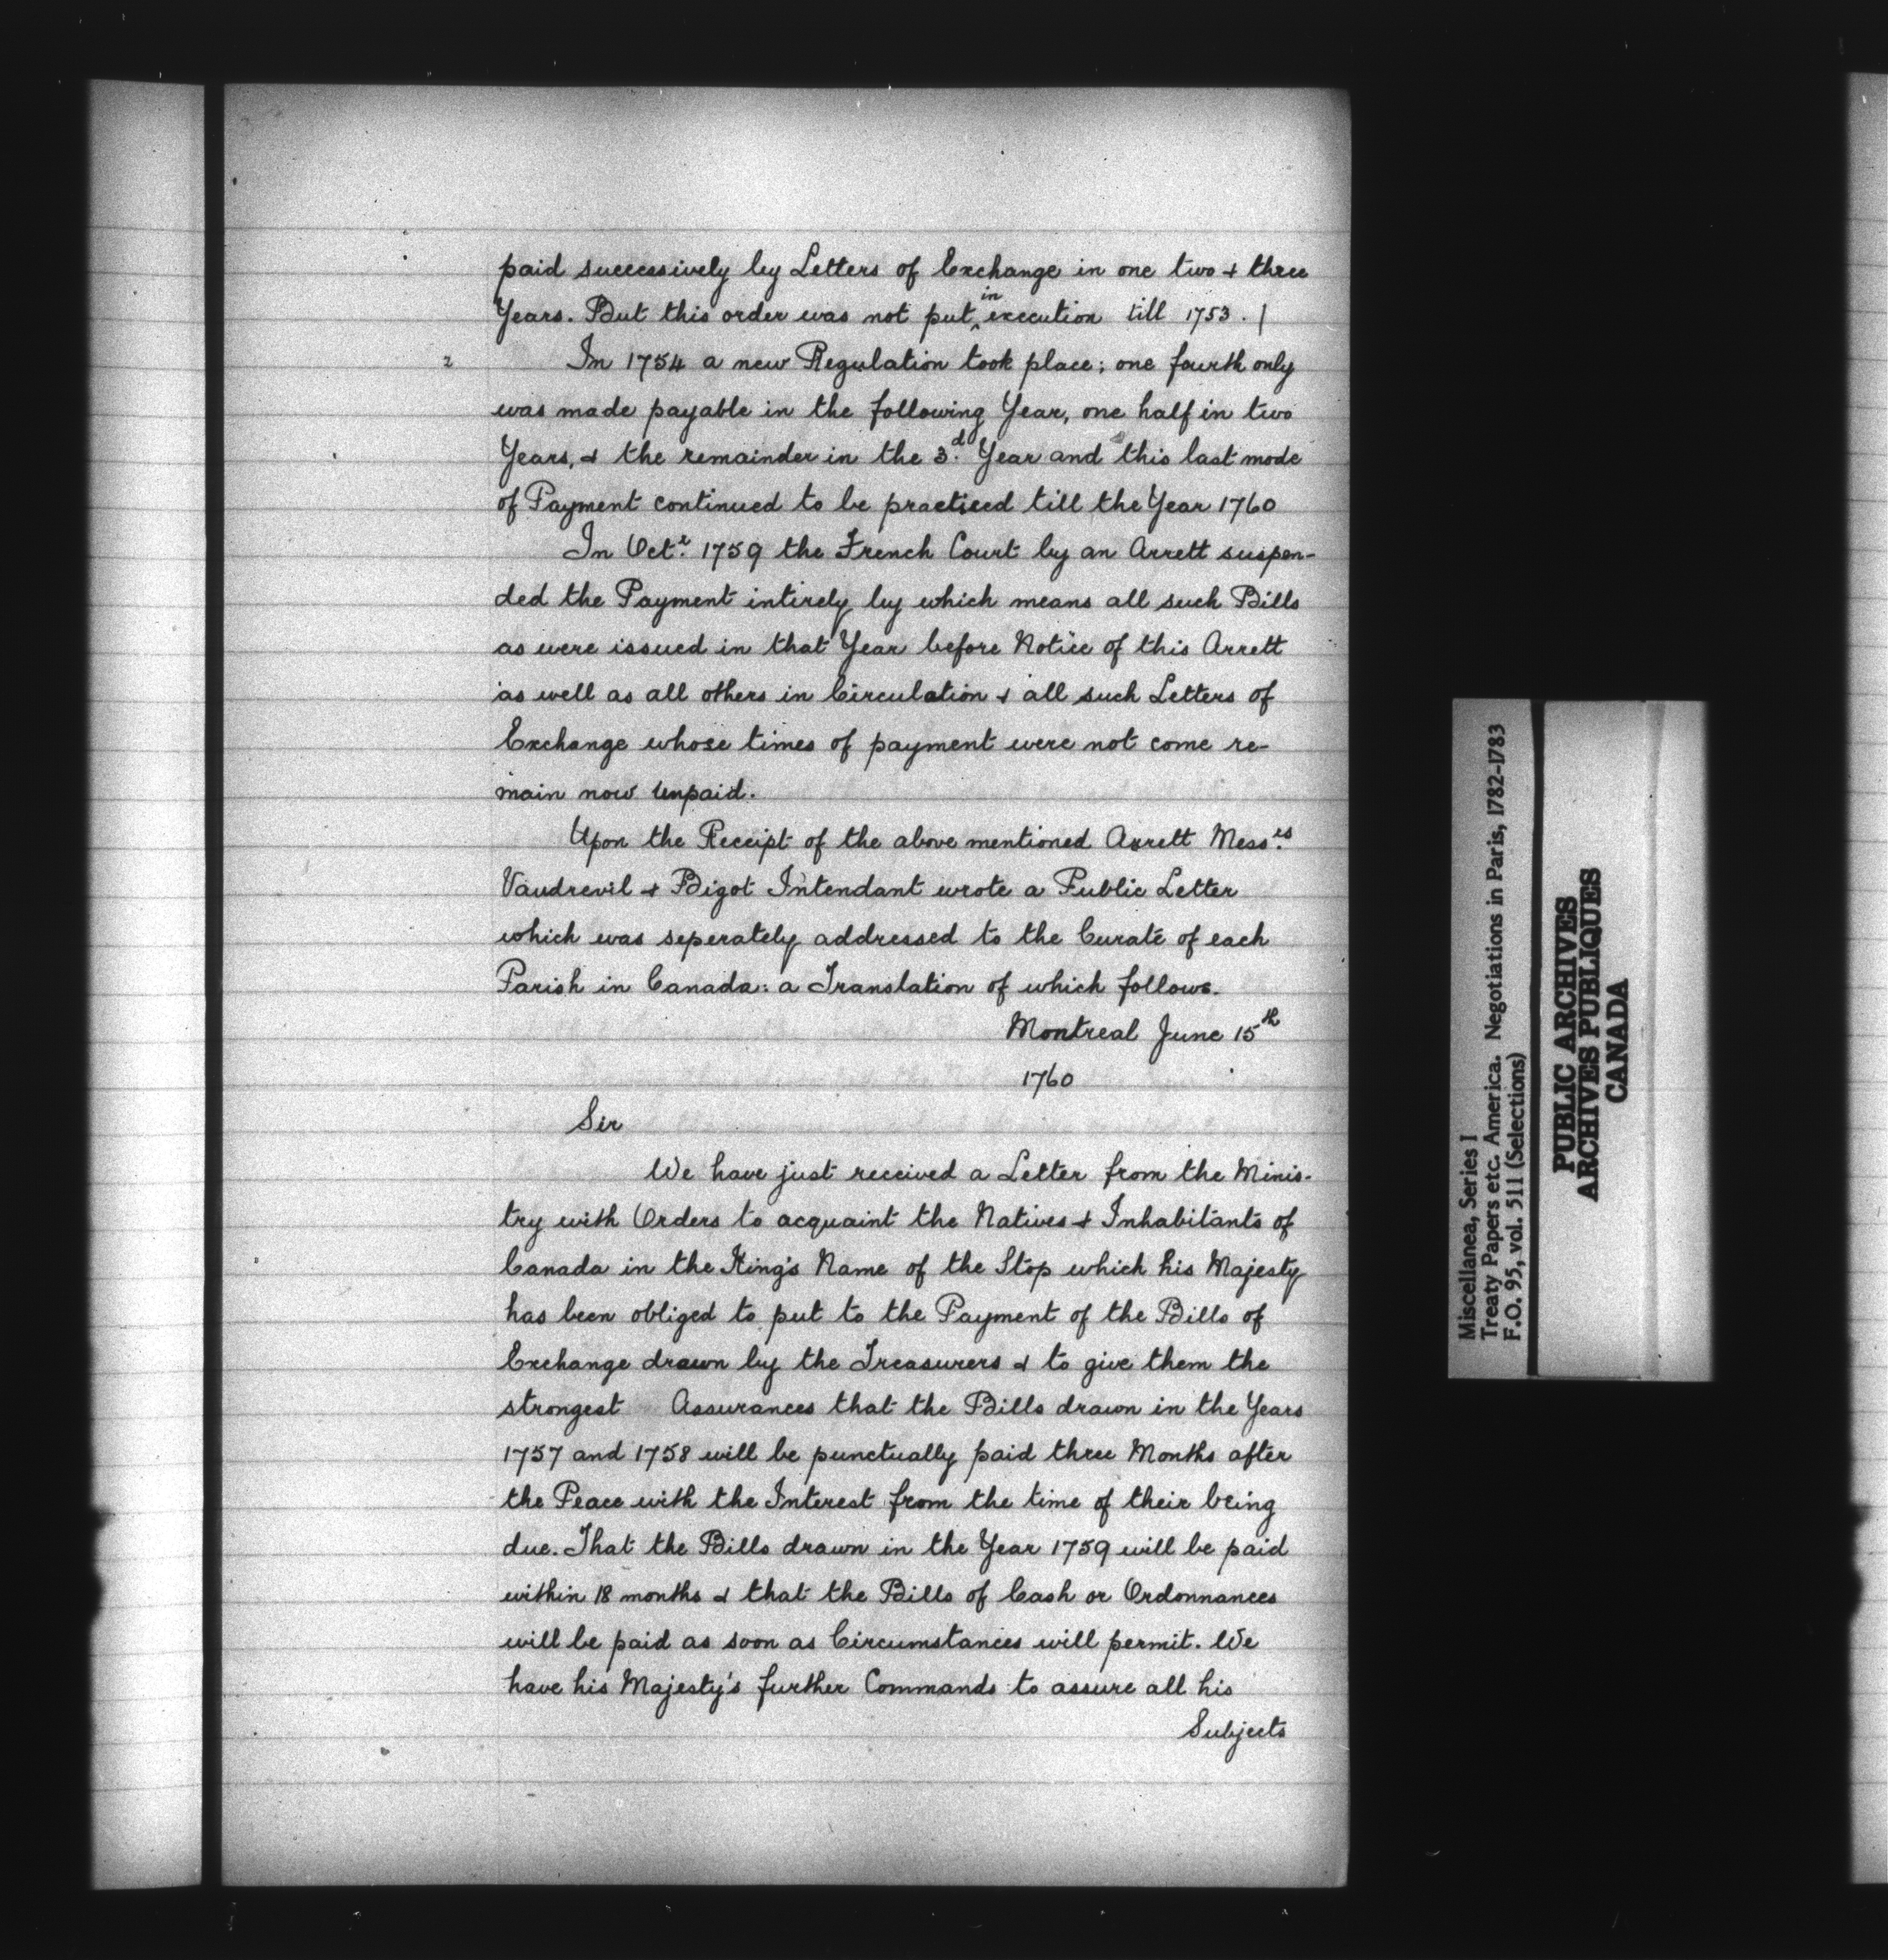 paid successively by Letters of Exchange in one two & three
Years. But this order was not put in execution till 1753. /
2 In 1754 a new Regulation took place; one fourth only
was made payable in the following Year, one half in two
Years, & the remainder in the 3.d Year and this last mode
of Payment continued to be practiced till the Year 1760
In Oct.r 1759 the French Court by an Arrett suspen-
ded the Payment intirely by which means all such Bills
as were issued in that Year before Notice of this Arrett
as well as all others in Circulation & all such Letters of
Exchange whose times of payment were not come re-
main now unpaid.
Upon the Receipt of the above mentioned Arrett Mess.rs
Vaudrevil & Bigot Intendant wrote a Public Letter
which was seperately addressed to the Curate of each
Parish in Canada: a Translation of which follows.
Montreal June 15th
1760
Sir
We have just received a Letter from the Minis-
try with Orders to acquaint the Natives & Inhabitants of
Canada in the King's Name of the Stop which his Majesty
has been obliged to put to the Payment of the Bills of
Exchange drawn by the Treasurers & to give them the
strongest Assurances that the Bills drawn in the Years
1757 and 1758 will be punctually paid three Months after
the Peace with the Interest from the time of their being
due. That the Bills drawn in the Year 1759 will be paid
within 18 months & that the Bills of Cash or Ordonnances
will be paid as soon as Circumstances will permit. We
have his Majesty's further Commands to assure all his
Subjects
Miscellanea, Series I
Treaty Papers etc. America. Negotiations in Paris, 1782-1783
F.O. 95, vol. 511 (Selections)
PUBLIC ARCHIVES
ARCHIVES PUBLIQUES
CANADA